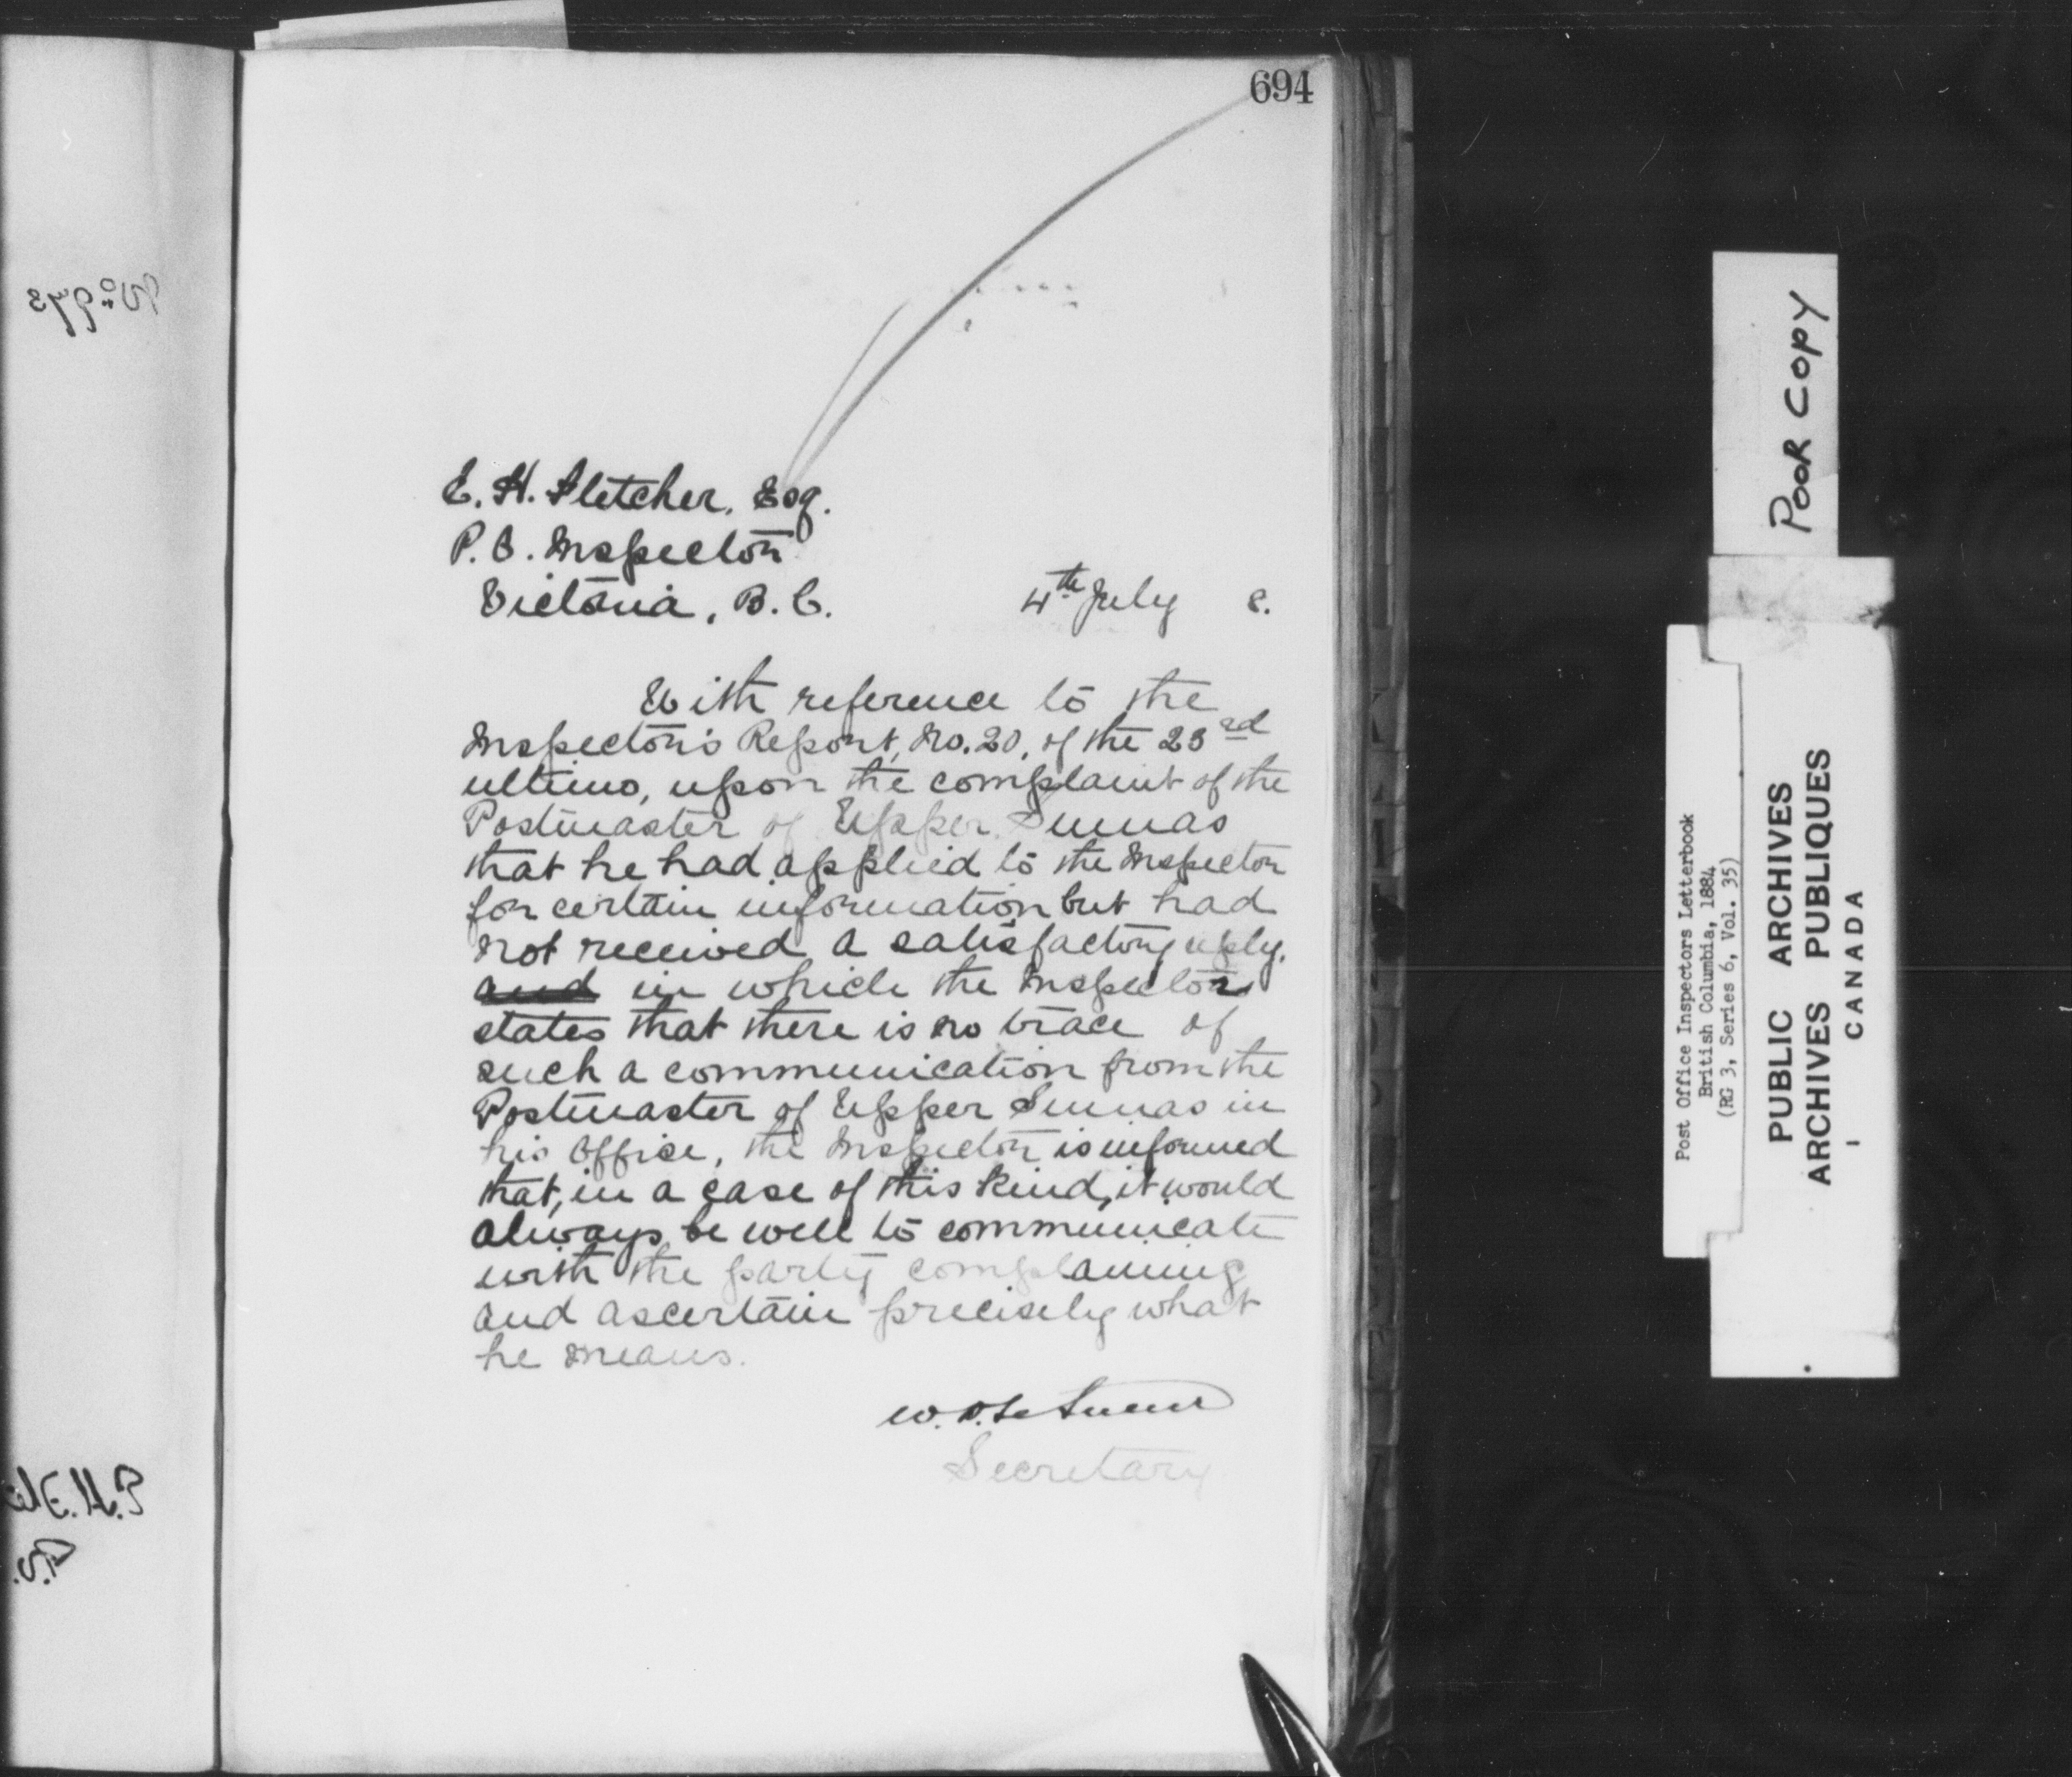 694
E. H. Fletcher, Esq.
P. O. Inspector
Victoria, B. C.
4th July 8.
With reference to the
Inspector's Report, No. 20, of the 23rd
ultimo, upon the complaint of the
Postmaster of Upper Sumas
that he had applied to the Inspector
for certain information but had
not received a satisfactory reply,
and in which the Inspector
states that there is no trace of
such a communication from the
Postmaster of Upper Sumas in
his office, the Inspector is informed
that, in a case of this kind, it would
always be well to communicate
with the party complaining
and ascertain precisely what
he means.
W. D. LeSueur
Secretary
POOR COPY
Post Office Inspectors Letterbook
British Columbia, 1884
(RG 3, Series 6, Vol. 35)
PUBLIC ARCHIVES
ARCHIVES PUBLIQUES
CANADA